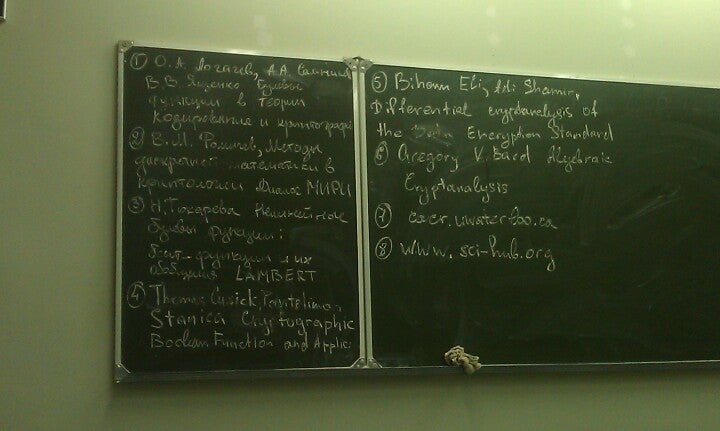 ① О.А. Логачев, А.А. Сальник
В.В. Ященко Булевы
функции в теории
кодирования и криптогра
② В.М. Фомичев, Методы
дискретной математики в
криптологии Диалог МИФИ
③ Н. Токарева Нелинейные
булевы функции:
бент-функции и их
обобщения LAMBERT
④ Thomas Cusick, Pantelimon
Stanica Cryptographic
Boolean Function and Applic
⑤ Bihom Eli, Adi Shamir,
Differential cryptanalysis of
the Data Encryption Standard
⑥ Gregory V. Bard Algebraic
Cryptanalysis
⑦ cacr.uwaterloo.ca
⑧ www.sci-hub.org